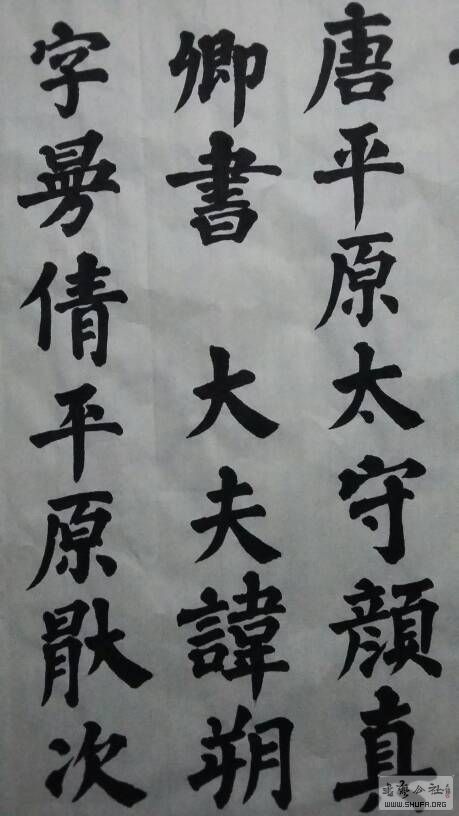 唐平原太守顔真
卿書 大夫諱朔
字曼倩平原猒次
WWW.SHUFA.ORG